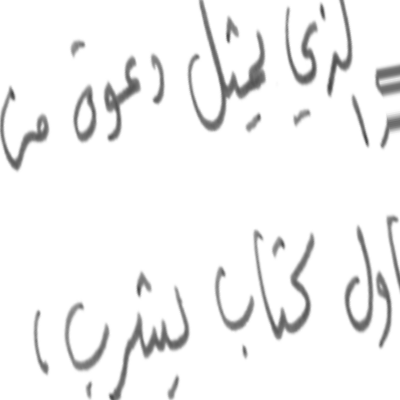 الذي يمثل دعوة من
اول كتاب يشرب ،